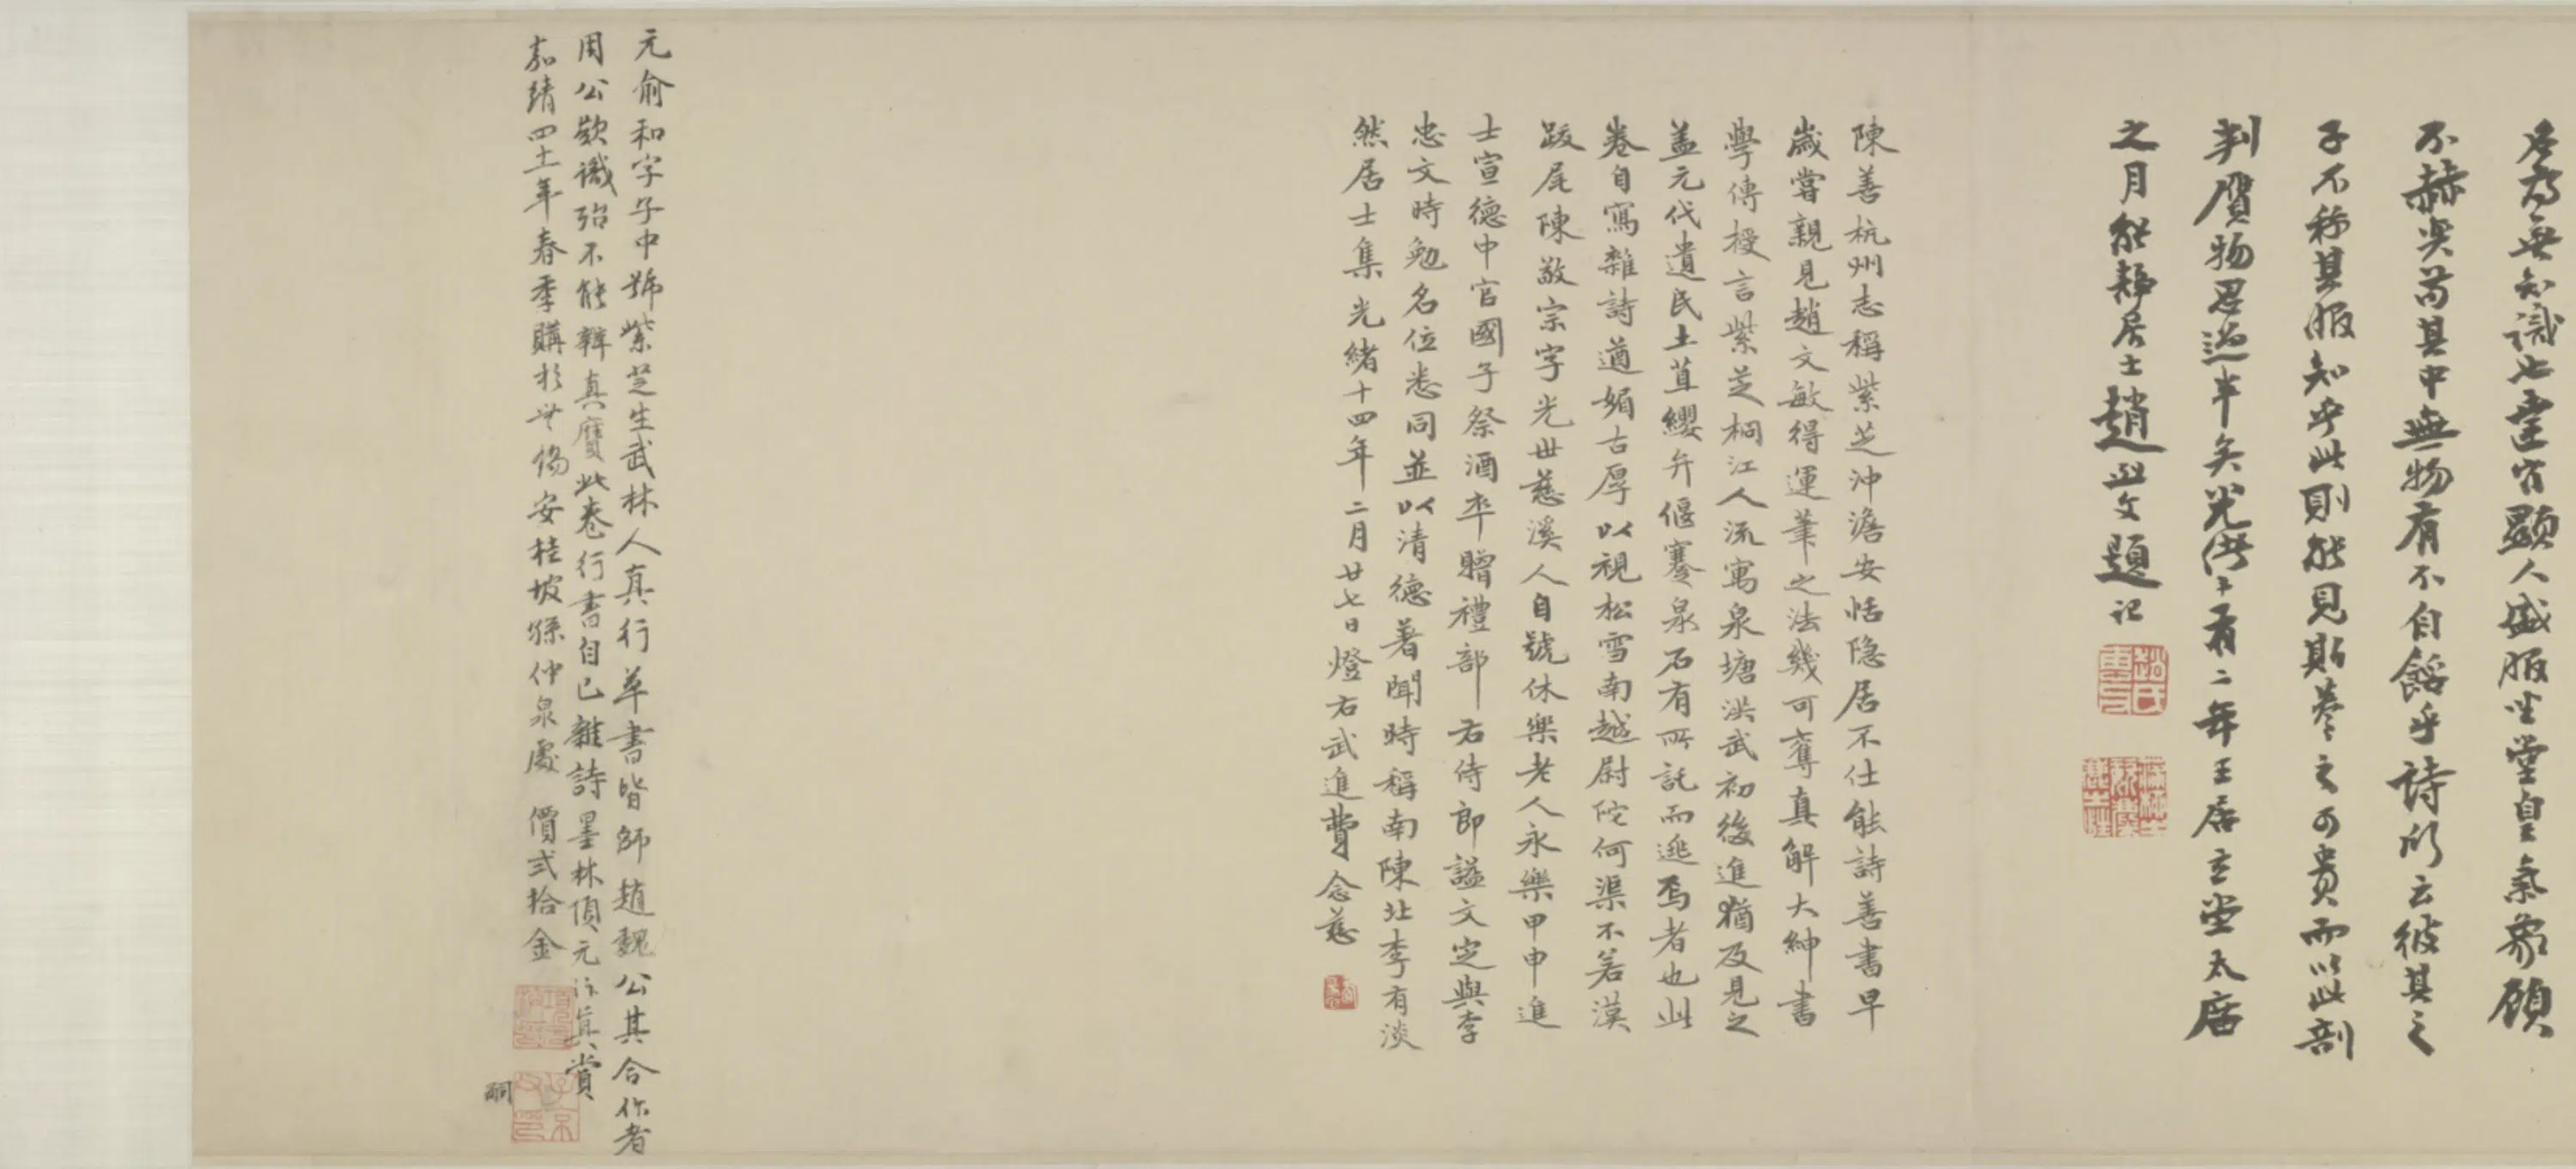 名為無知識也達官顯人盛服坐堂皇氣象顧
不赫奕苟其中無物有不自餡乎詩所云彼其之
子不稱其服知乎此則能見斯卷之可貴而以此剖
判贋物思過半矣光緒十有二年王居玄堂太庿
之月能靜居士趙烈文題記
陳善杭州志稱紫芝沖澹安恬隱居不仕能詩善書早
歲嘗親見趙文敏得運筆之法幾可奪真解大紳書
學傳授言紫芝桐江人流寓泉塘洪武初後進猶及見之
蓋元代遺民土苴纓弁偃蹇泉石有所託而逃焉者也此
卷自寫雜詩遒媚古厚以視松雪南越尉佗何渠不若漢
跋尾陳敬宗字光世慈溪人自號休樂老人永樂甲申進
士宣德中官國子祭酒卒贈禮部右侍郎謚文定與李
忠文時勉名位悉同並以清德著聞時稱南陳北李有淡
然居士集光緒十四年二月廿七日燈右武進費念慈
元俞和字子中號紫芝生武林人真行草書皆師趙魏公其合作者
用公欵識殆不能辨真贋此卷行書自已雜詩墨林項元汴真賞
嘉靖四十一年春季購於無錫安桂坡孫仲泉處 價弍拾金
嗣